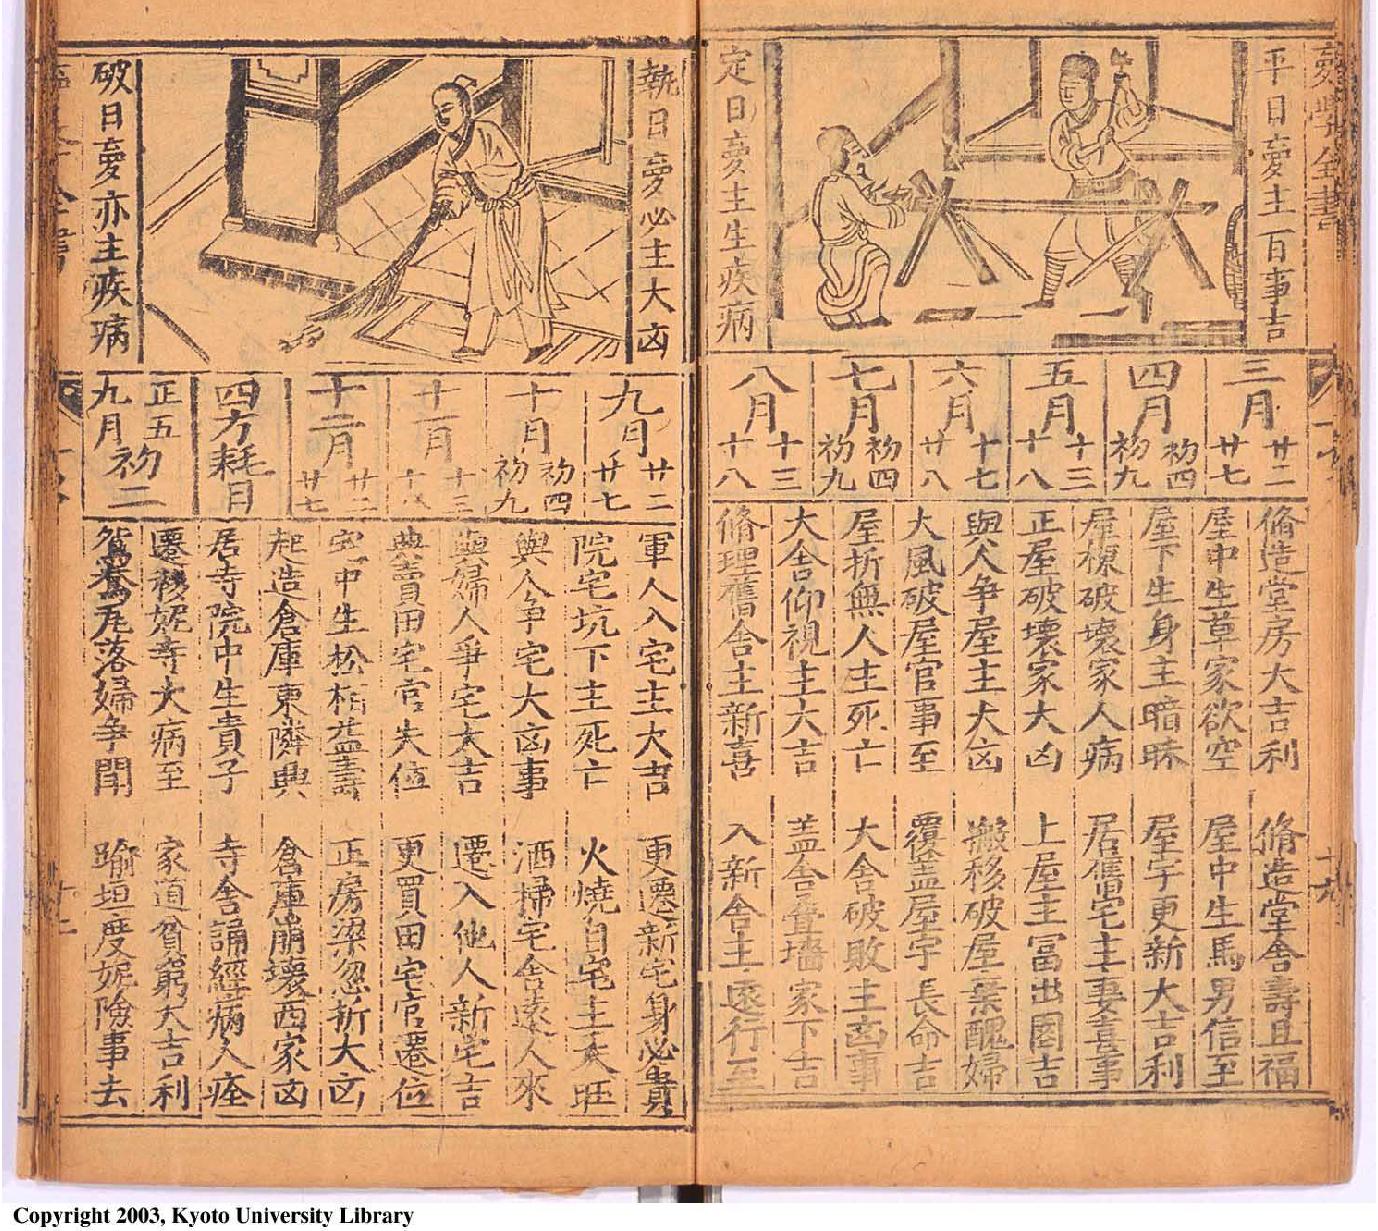 平日夢主百事吉
定日夢主生疾病
三月 廿二 廿七
四月 初四 初九
五月 十三 十八
六月 十七 廿八
七月 初四 初九
八月 十三 十八
脩造堂房大吉利 脩造堂舎壽且福
屋中生草家欲空 屋中生馬男信至
屋下生身主暗昧 屋宇更新大吉利
屋棟破壞家人病 居舊宅主妻喜事
正屋破壞家大凶 上屋主冨出圂吉
與人争屋主大凶 搬移破屋棄醜婦
大風破屋官事至 覆蓋屋宇長命吉
屋折無人主死亡 大舍破敗主凶事
大舍仰視主大吉 盖舎疊墻家下吉
脩理舊舍主新喜 入新舍主遠行至
執日夢必主大凶
破日夢亦主疾病
九月 廿二 廿七
十月 初四 初九
十一月 十三 十八
十二月 廿二 廿七
四方耗日
正五九月 初二
軍人入宅主大吉 更遷新宅身必貴
院宅坑下主死亡 火燒自宅主大旺
與人争宅大凶事 洒掃宅舍遠人來
與婦人争宅大吉 遷入他人新宅吉
典賣田宅官失位 更買田宅官遷位
宅中生松栢益壽 正房梁忽折大凶
起造倉庫東隣興 倉庫崩壞西家凶
居寺院中生貴子 寺舎誦經病人痊
遷移妮寺大病至 家道貧窮大吉利
鴛鴦瓦落婦争閙 踰垣度妮險事去
Copyright 2003, Kyoto University Library